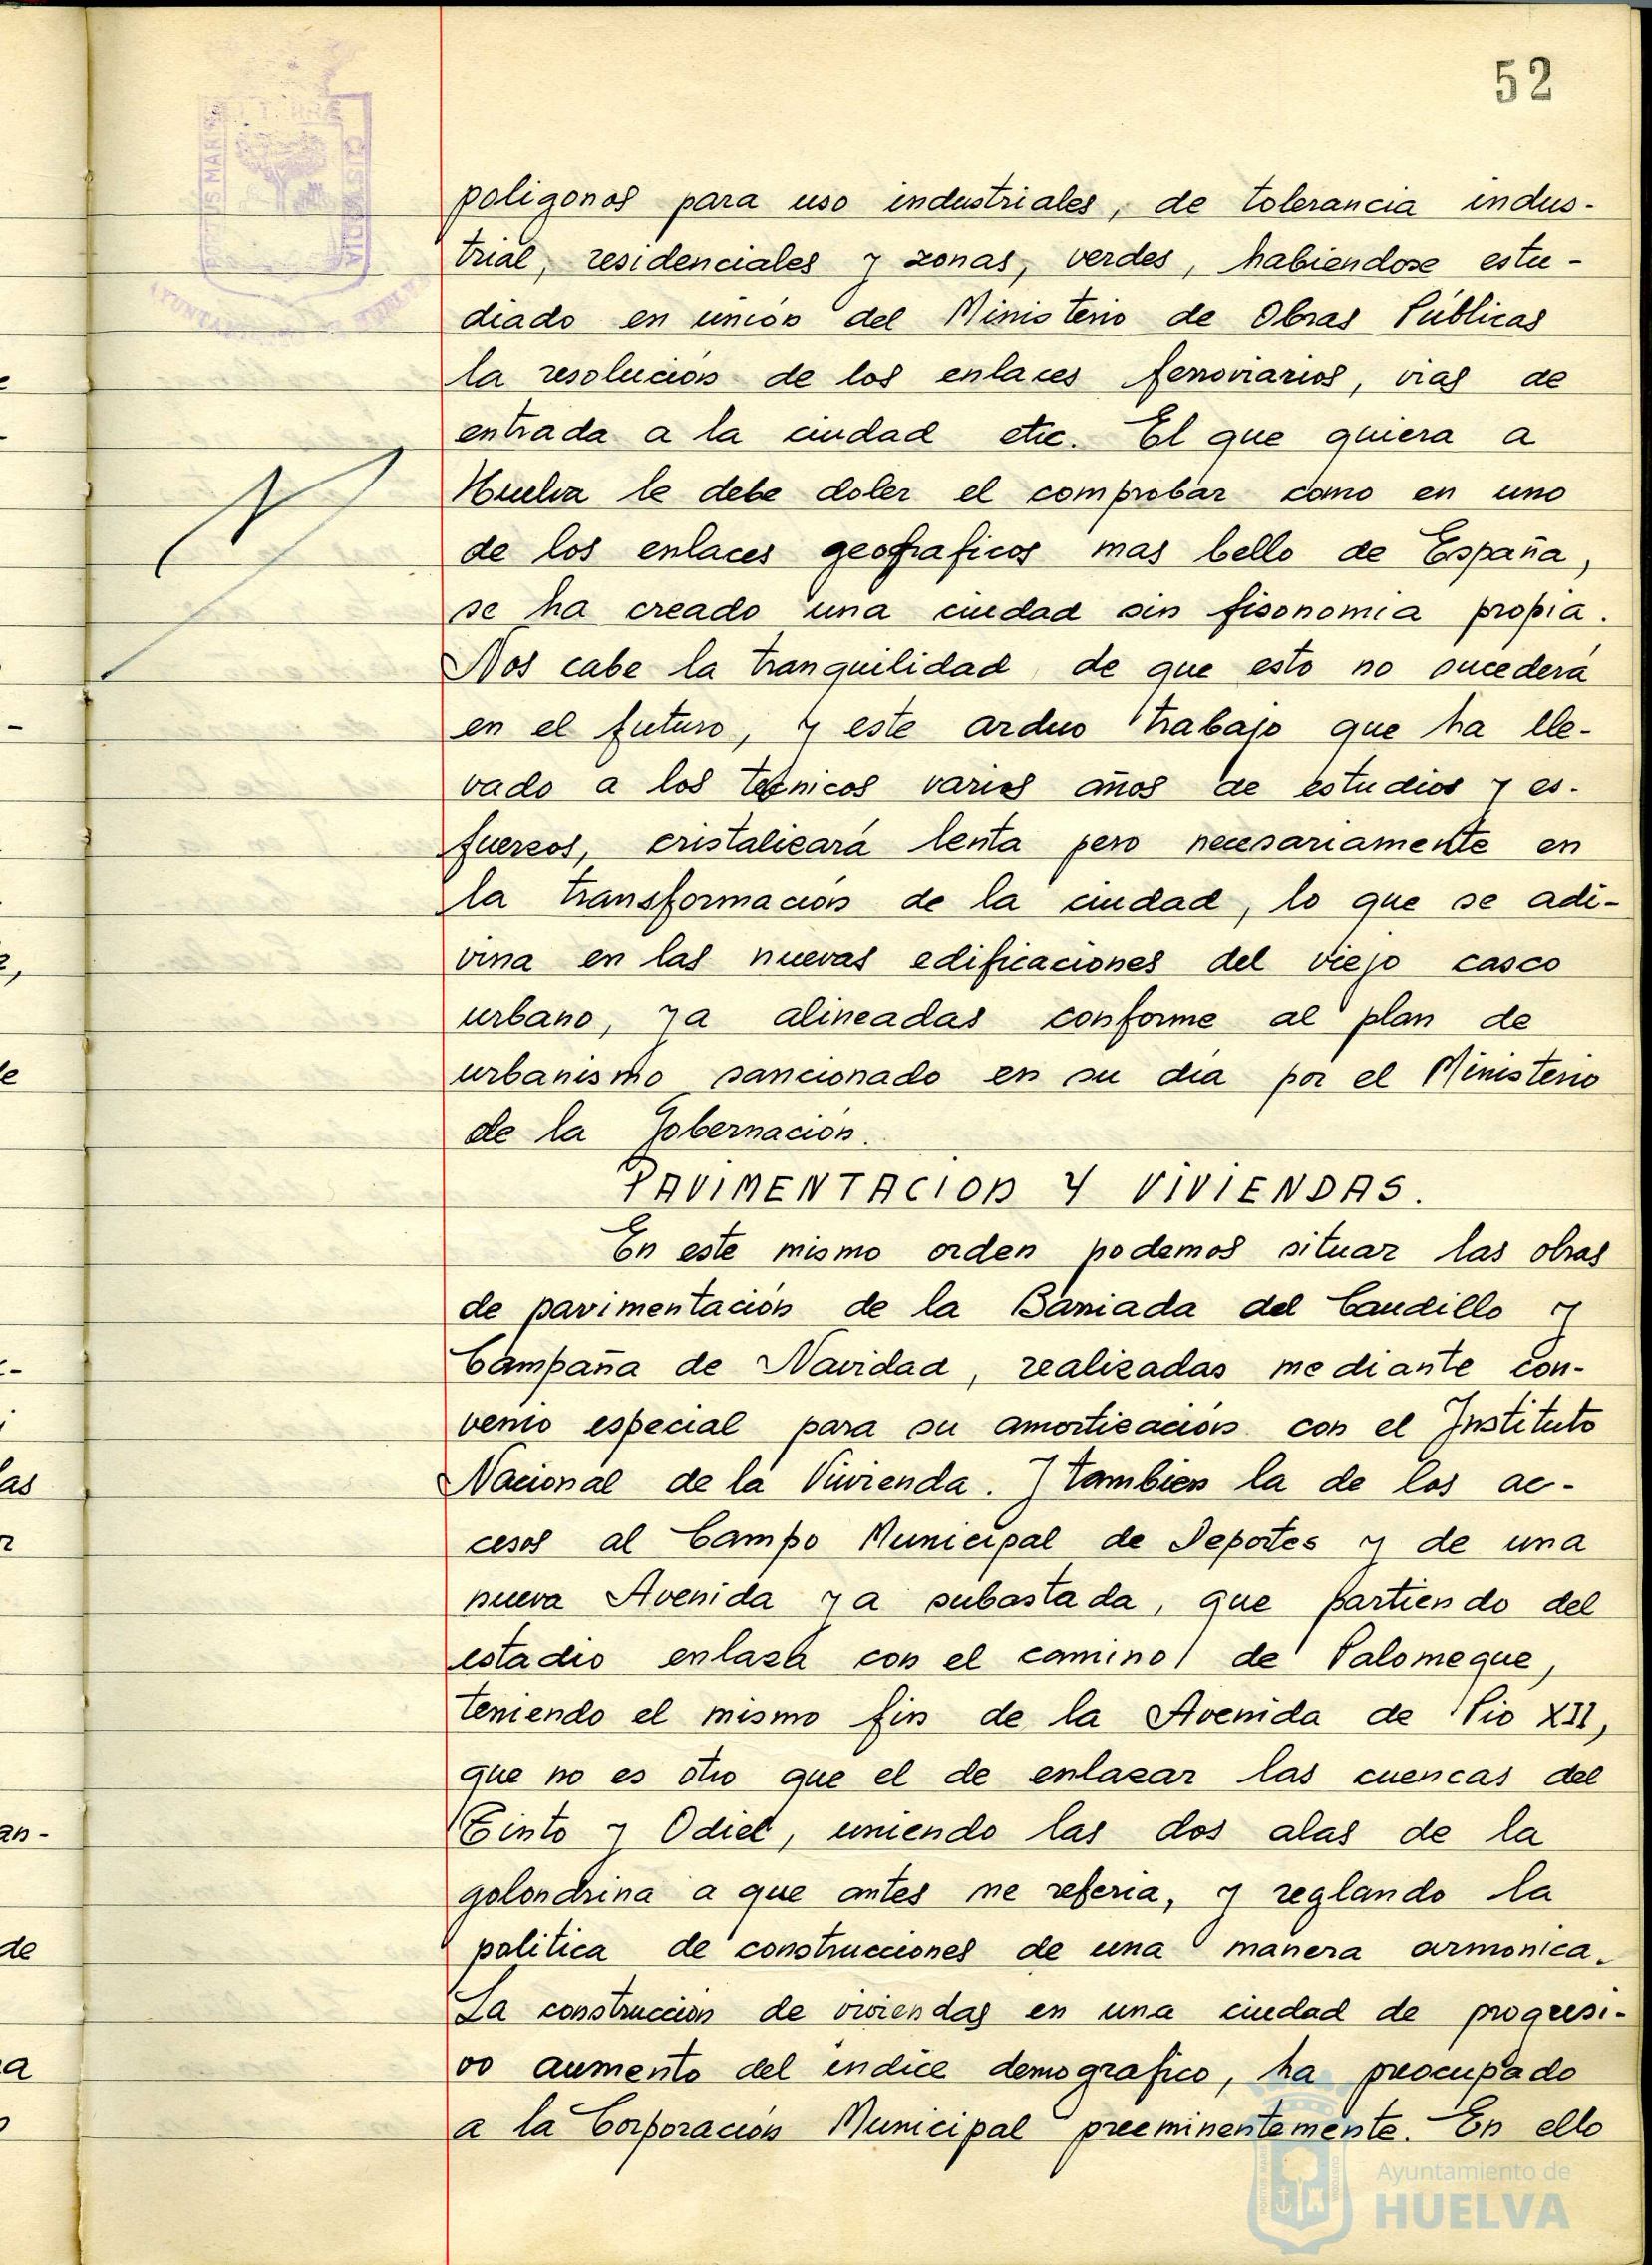 52
poligonos para uso industriales, de tolerancia indus-
trial, residenciales y zonas, verdes, habiendose estu-
diado en unión del Ministerio de Obras Públicas
la resolución de los enlaces ferroviarios, vias de
entrada a la ciudad etc. El que quiera a
Huelva le debe doler el comprobar como en uno
de los enlaces geograficos mas bello de España,
se ha creado una ciudad sin fisonomia propia.
Nos cabe la tranquilidad de que esto no sucederá
en el futuro, y este arduo trabajo que ha lle-
vado a los tecnicos varios años de estudios y es-
fuerzos, cristalizará lenta pero necesariamente en
la transformacion de la ciudad, lo que se adi-
vina en las nuevas edificaciones del viejo casco
urbano, ya alineadas conforme al plan de
urbanismo sancionado en su dia por el Ministerio
de la Gobernación.
PAVIMENTACION Y VIVIENDAS.
En este mismo orden podemos situar las obras
de pavimentación de la Barriada del Caudillo y
Campaña de Navidad, realizadas mediante con-
venio especial para su amortización con el Instituto
Nacional de la Vivienda. Y tambien la de los ac-
cesos al Campo Municipal de Deportes y de una
nueva Avenida ya subastada, que partiendo del
estadio enlaza con el camino de Palomeque,
teniendo el mismo fin de la Avenida de Pio XII,
que no es otro que el de enlazar las cuencas del
Tinto y Odiel, uniendo las dos alas de la
golondrina a que antes me referia, y reglando la
politica de construcciones de una manera armonica.
La construccion de viviendas en una ciudad de progresi-
vo aumento del indice demografico, ha preocupado
a la Corporación Municipal preeminentemente. En ello
Ayuntamiento de
HUELVA